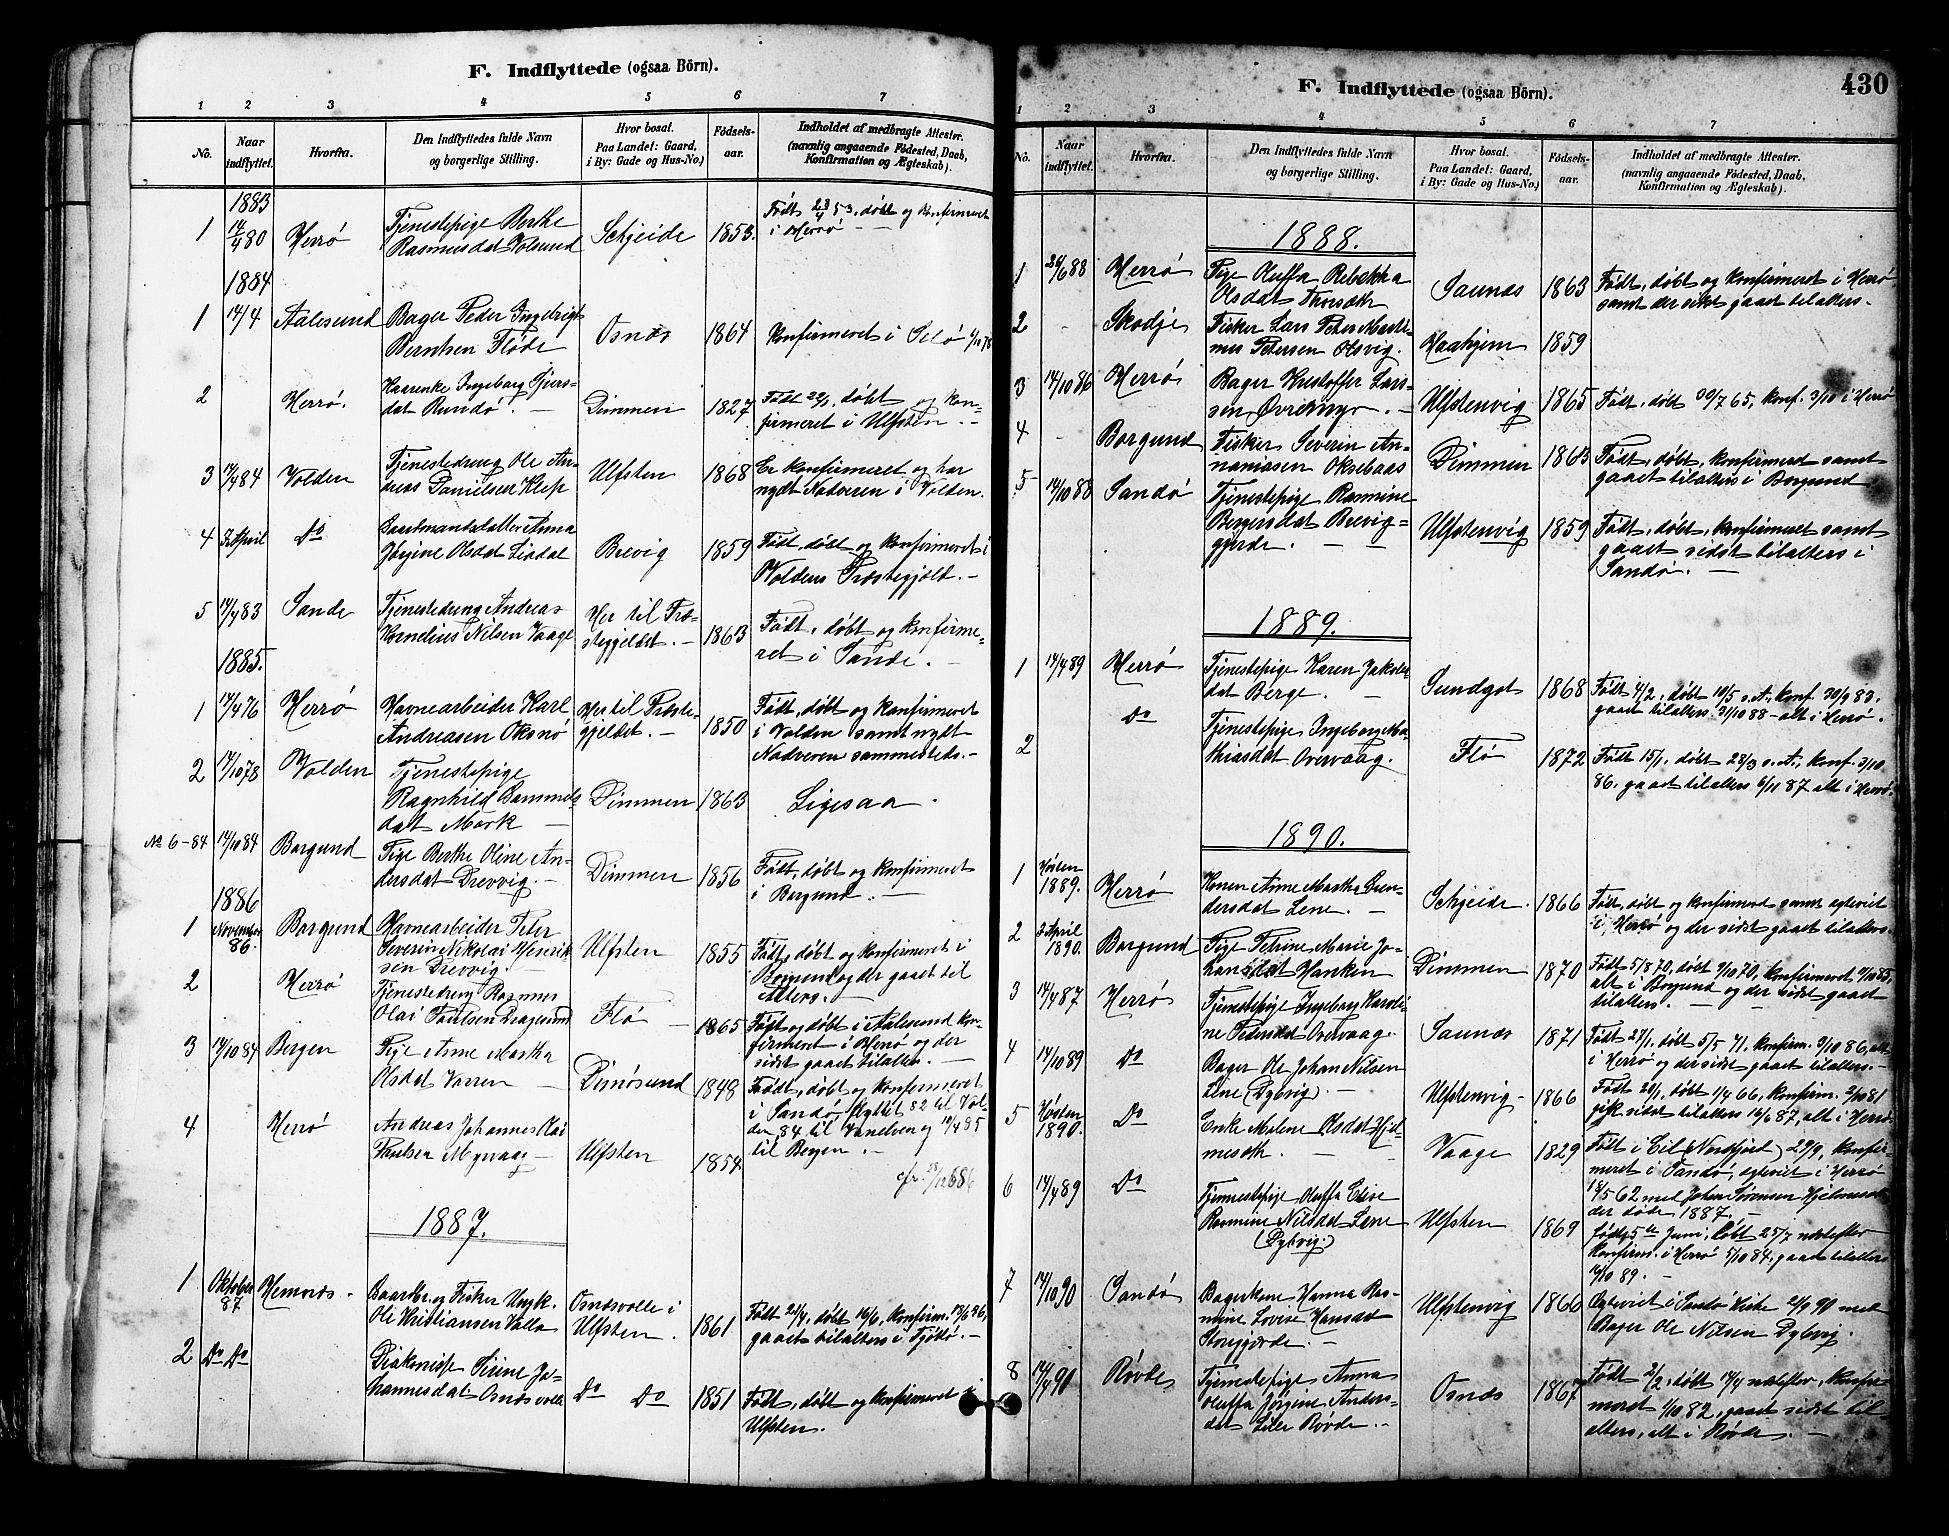 F. Indflyttede (ogsaa Börn).
1 2 3 4 5 6 7
No. Naar indflyttet. Hvorfra. Den Indflyttedes fulde Navn og borgerlige Stilling. Hvor bosat. Paa Landet: Gaard, i By: Gade og Hus-No.) Fødsels-aar. Indholdet af medbragte Attester. (navnlig angaaende Födested, Daab, Konfirmation og Ægteskab).
1883
1 14/4 80 Herrø Tjenestepige Berthe
Rasmusdat Volsund Schjeide 1853. Født 23/4 53, døbt og konfirmeret
i Herrø
1884
1 14/4 Aalesund Bager Peder Ingebrigt
Berntsen Fløde Osnæs 1864 Konfirmeret i Selø
2 Herrø. Ingeborg Sjurs-
dat Rundø. Dimmen 1827 Født 22/1, døbt og kon-
firmeret i Ulfsten.
3 14/4 84 Volden Tjenestedreng Ole An-
dreas Danielsen Klep Ulfsten 1868 Er konfirmeret og har
nydt Nadveren i Volden.
4 April Do Anna
Olsdat Liadal Brevig 1859 Født, døbt og konfirmeret i
Voldens Præstegjæld.
5 14/4 83 Sande Tjenestedreng Andreas
Kornelius Nilsen Vaage Her til Præ-
stegjeldet. 1863 Født, døbt og konfirme-
ret i Sande.
1885.
1 14/4 76 Herrø Havnearbeider Karl
Andreasen Oksnø Her til Præste-
gjeldet. 1850 Født, døbt og konfirmeret
i Volden samt nydt
Nadveren sammesteds.
2 14/10 78 Volden Tjenestepige
Ragnhild
dat Mork Dimmen 1863 Ligesaa.
No 6-84 14/10 84 Borgund Pige Berthe Oline An-
dersdat Drevvig. Dimmen 1856 Født, døbt og konfirmeret
i Borgund.
1886
1 November 86. Borgund Havnearbeider Peter
Severin Nikolai Henrik-
sen Drevvig. Ulfsten 1855 Født, døbt og konfirmeret i
Borgund og der gaaet til
Alters.
2 Herrø Tjenestedreng Rasmus
Olai Paulsen Dragesund Flø 1865 Født og døbt i Aalesund kon-
firmeret i Herrø og der
sidst gaaet tilalters.
3 14/10 84 Bergen Pige Anne Martha
Olsdat Varren Dimøsund 1848 Født, døbt og konfirmeret
i Sandø, flyttet 82 til Vol-
den 84 til Vanelven og 14/4 85
til Bergen.
4 Herrø Andreas Johannes Kai
Paulsen Myrvaag Ulfsten 1854
1887.
1 Oktober 87 Hemnæs. Baadbr. og Fisker Ungk.
Ole Kristiansen Valla Osnæsvolle i
Ulfsten. 1861 Født 21/4, døbt 16/6, Konfirm.
gaaet tilalters i Tjøttø.
2 Do Do Diakonisse Seine Jo-
hannesdat Osnæsvolle Do Do 1851 Født, døbt og konfirmeret i
Ulfsten.
F. Indflyttede (ogsaa Börn). 430
1 2 3 4 5 6 7
No. Naar indflyttet. Hvorfra. Den Indflyttedes fulde Navn og borgerlige Stilling. Hvor bosat. Paa Landet: Gaard, i By: Gade og Hus-No.) Fødsels-aar. Indholdet af medbragte Attester. (navnlig angaaende Födested, Daab, Konfirmation og Ægteskab).
1888.
1 Herrø Pige Oluffa Rebekka
Olsdat Thorsæth Saunæs 1863 Født, døbt og konfirmeret i Herrø
samt der sidst gaaet tilalters.
2 - Skodje Fisker Lars Peter Marti-
nus Petersen Olsvig. Haahjem 1859
3 14/10 86 Herrø Bager Kristoffer Lars-
sen Ulfstenvig 1865 Født, døbt 30/7 65, konf. 3/10 i Herrø
4 - Borgund Fisker Severin An-
naniasen Oksebaas Dimmen 1863 Født, døbt, konfirmeret samt
gaaet tilalters i Borgund
5 14/10 88 Sandø Tjenestepige Rasmine
Bergersdat Brevig-
gjerde. Ulfstenvig 1859 Født, døbt, konfirmeret samt
gaaet sidst tilalters i
Sandø.
1889.
1 14/4 89 Herrø Tjenestepige Karen Jakobs
dat Berge. Sundgot 1868 Født 4/2, døbt 10/5 s. A. konf. 30/9 83.
gaaet tilalters 31/10 88 - alt i Herrø.
2 Do Tjenestepige Ingeborg Ma-
thiasdat Overvaag. Flø 1872 Født 15/1, døbt 28/3 s. A., konf. 3/10
86. gaaet tilalters 6/11 87 alt i Herrø.
1890.
1 Høsten 1889. Herrø Konen Anne Martha
dersdat Lene. Schjeide. 1866 Født, døbt og konfirmered samt egteviet
i Herrø og der sidst gaaet tilalters.
2 April 1890. Borgund Pige Petrine Marie Jo-
hansdat Hanken Dimmen 1870 Født 5/8 70, døbt 9/10 70, konfirmeret
alt i Borgund og der sidst gaaet
tilalters.
3 14/4 87 Herrø Tjenestepige Ingeborg Karoli-
ne Pedersdat Overvaag. Saunæs 1871 Født 27/1, døbt 5/5 71, konfirm. 3/10 86, alt
i Herrø og der sidst gaaet tilalters.
4 14/10 89 Do Bager Ole Johan Nilsen
Lene (Dybvig). Ulfstenvig 1866 Født 20/1, døbt 1/4 66, konfirm. 2/10 81
gik sidst tilalters 16/6 87, alt i Herrø.
5 Høsten 1890. Do Enke Malene Olsdat Hjel-
meseth. Vaage 1829 Født i Eid (Nordfjord) 29/9, konfir-
meret i Sandø, egteviet i Herrø
18/5 62 med Johan Sørensen Hjelmeset
der døde 1887.
6 14/4 89 Do Tjennestepige Oluffa Elise
Rasmine Nilsdat Lene
(Dybvig.) Ulfsten 1869 født 5te Juni, døbt 25/7 næstefter
konfirm. i Herrø 5/10 84, gaaet tilalters
14/10 89.
7 14/10 90 Sandø Bagerkone Hanna Ras-
mine Lovise Hansdat
Storegjerde. Ulfstenvig 1866 Egteviet i Sandø Kirke 21/9 90 med
Bager Ole Nilsen Dybvig.
8 14/4 90 Røvde Tjenestepige Anna
Oluffa Jørgine Anders-
dat Lille Røvde. Osnæs 1867 Født 2/2, døbt 19/4 næstefter, konfir
meret 1/10 82, gaaet sidst til
alters, alt i Røvde.